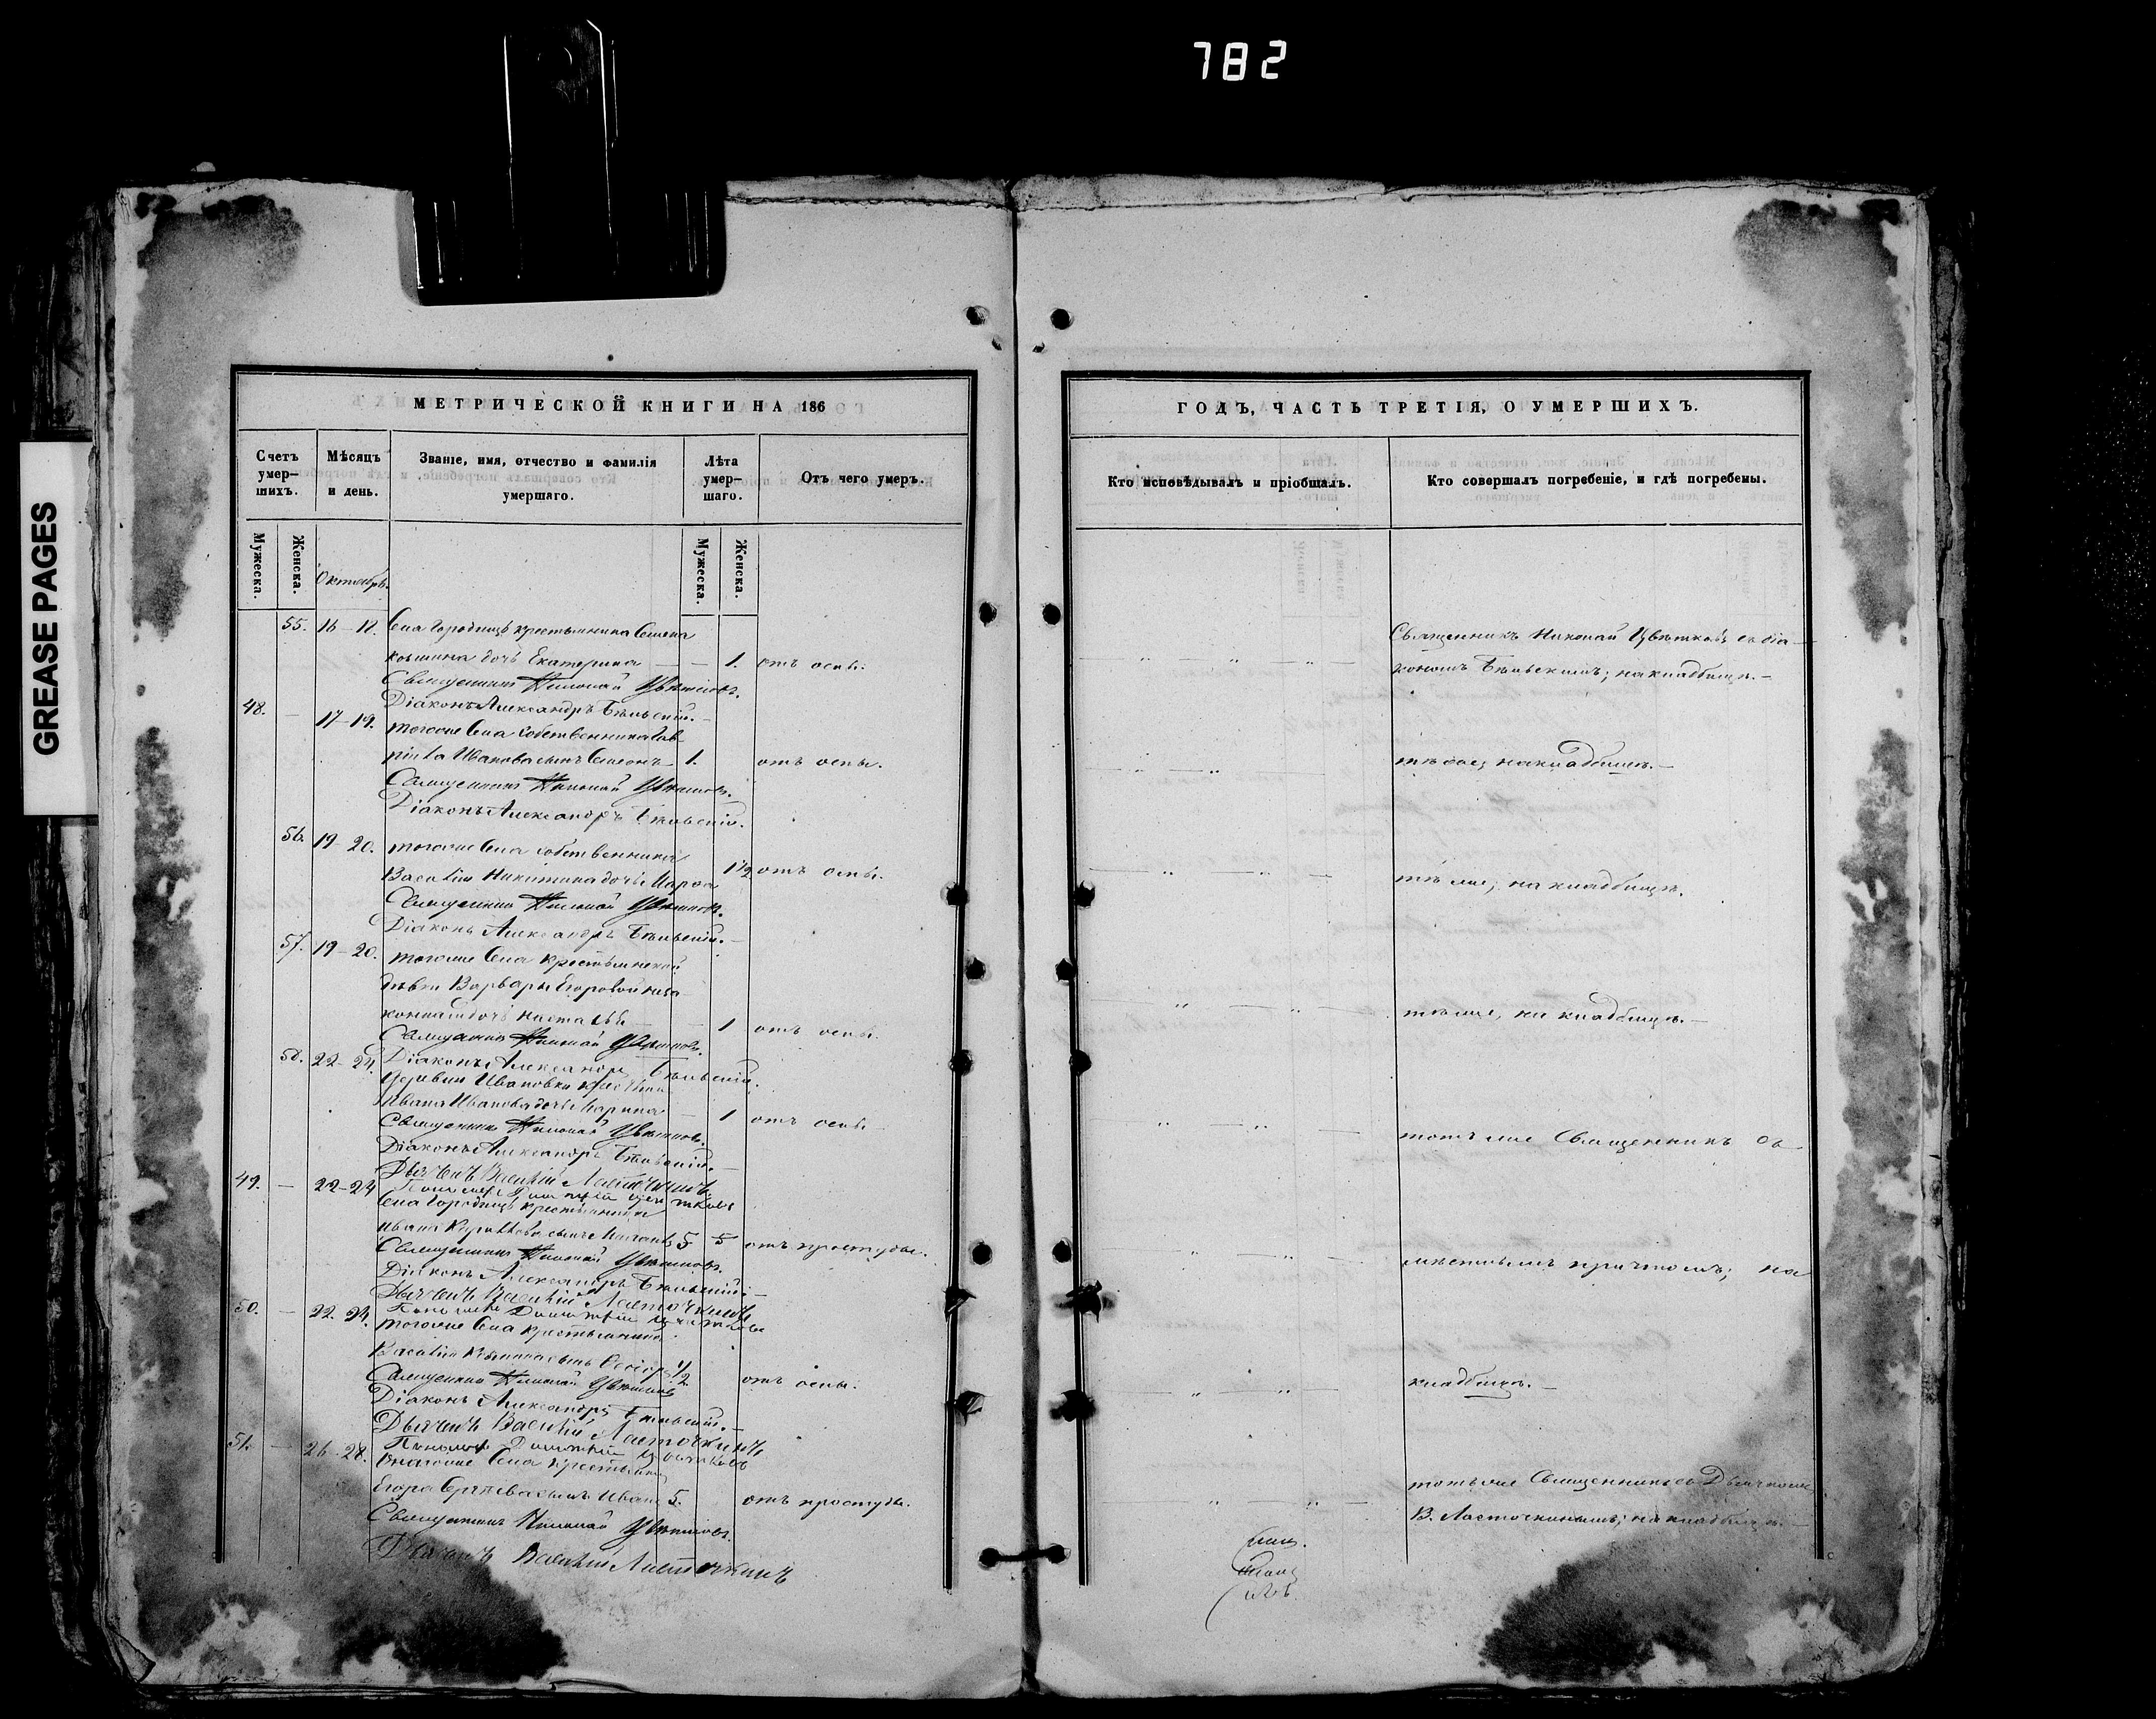 782
GREASE PAGES
МЕТРИЧЕСКОЙ КНИГИ НА 186
Счетъ умер-шихъ.
Мѣсяцъ и день.
Званіе, имя, отчество и фамилія умершаго.
Лѣта умер-шаго.
Отъ чего умеръ.
Мужеска.
Женска.
Октябрь.
Мужеска.
Женска.
55. 16-18. Села Городищъ крестьянина Семена
дочь Екатерина — — 1. отъ оспы.
Священникъ Николай Цвѣтковъ.
Діаконъ Александръ Бѣльскій.
48. — 17-19. тогоже Села собственника Гав-
ріила Иванова сынъ Симеонъ 1. отъ оспы.
Священникъ Николай Цвѣтковъ.
Діаконъ Александръ Бѣльскій.
56. 19-20. тогоже Села собственника
Василія Никитина дочь Марѳа 1½ отъ оспы.
Священникъ Николай Цвѣтковъ.
Діаконъ Александръ Бѣльскій.
57. 19-20. тогоже Села крестьянской
дѣвки Варвары Егоровой неза-
конная дочь Настасья — 1 отъ оспы.
Священникъ Николай Цвѣтковъ.
58. 22-24. Діаконъ Александръ Бѣльскій.
деревни Ивановки
Ивана Иванова дочь Марина — 1 отъ оспы
Священникъ Николай Цвѣтковъ.
Діаконъ Александръ Бѣльскій.
Дьячекъ Василій Ласточкинъ
49. — 22-24 Пономарь Димитрій
Села Городищъ крестьянина
Ивана сынъ 5 5 отъ простуды.
Священникъ Николай Цвѣтковъ.
Діаконъ Александръ Бѣльскій.
Дьячекъ Василій Ласточкинъ
50. — 22-24. Пономарь Димитрій
тогоже Села крестьянина
Василія сынъ ½ отъ оспы.
Священникъ Николай Цвѣтковъ
Діаконъ Александръ Бѣльскій.
Дьячекъ Василій Ласточкинъ
51. — 26-28. Пономарь Димитрій
тогоже Села крестьянина
Егора сынъ Иванъ 5. отъ простуды.
Священникъ Николай Цвѣтковъ.
Дьячекъ Василій Ласточкинъ
ГОДЪ, ЧАСТЬ ТРЕТІЯ, О УМЕРШИХЪ.
Кто исповѣдывалъ и пріобщалъ.
Кто совершалъ погребеніе, и гдѣ погребены.
Священникъ Николай Цвѣтковъ съ діа-
кономъ Бѣльскимъ; на кладбищѣ.
тѣ же; на кладбищѣ.
тѣ же; на кладбищѣ.
тѣ же, на кладбищѣ.
тотъ же Священникъ съ
мѣстнымъ причтомъ; на
кладбищѣ.
тотъ же Священникъ съ Дьячкомъ
В. Ласточкинымъ; на кладбищѣ.